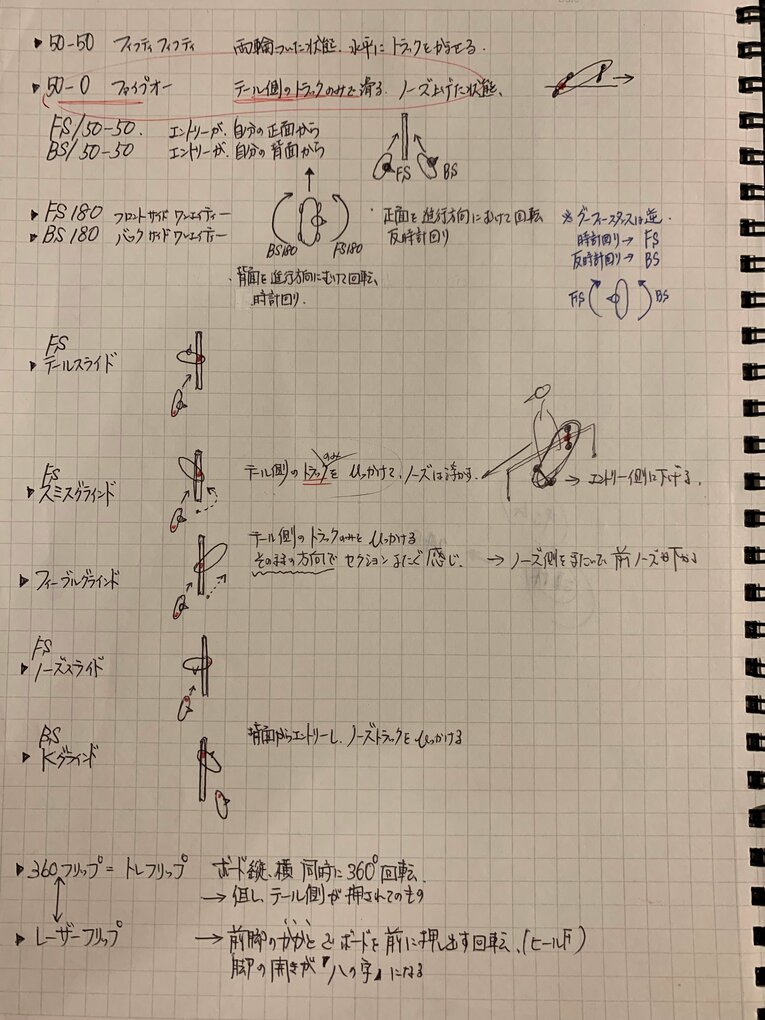 ▶ 50-50 フィフティフィフティ 両輪ついた状態、水平にトラックをかませる.
▶ 50-0 ファイブオー テール側のトラックのみで滑る. ノーズ上げた状態.
FS/50-50. エントリーが、自分の正面から
BS/50-50 エントリーが、自分の背面から
FS BS
▶ FS180 フロントサイドワンエイティー
▶ BS180 バックサイドワンエイティー
BS180 FS180
・正面を進行方向にむけて回転
反時計回り
・背面を進行方向にむけて回転、
時計回り.
※グーフィースタンスは逆.
時計回り→ FS
反時計回り→ BS
FS BS
FS
▶ テールスライド
FS
▶ スミスグラインド テール側のトラックのみをひっかけて、ノーズは浮かす. → エントリー側に下げる.
テール側のトラックのみをひっかける
▶ フィーブルグラインド そのままの方向でセクションまたぐ感じ. → ノーズ側をまたいで、前ノーズが下がる
FS
▶ ノーズスライド
BS 背面からエントリーし、ノーズトラックをひっかける
▶ Kグラインド
▶ 360フリップ = トレフリップ ボード縦、横 同時に360°回転.
→ 但し、テール側が押されてのもの
▶ レーザーフリップ → 前脚のかかとでボードを前に押し出す回転、(ヒールF)
脚の開きが『ハの字』になる